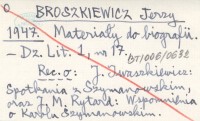 BROSZKIEWICZ Jerzy
1947. Materiały do biografii.
- Dz. Lit. 1, nr 17.
BT/006/0632
Rec. o: J. Iwaszkiewicz:
Spotkania z Szymanowskim,
oraz J. M. Rytard: Wspomnienia
o Karolu Szymanowskim.